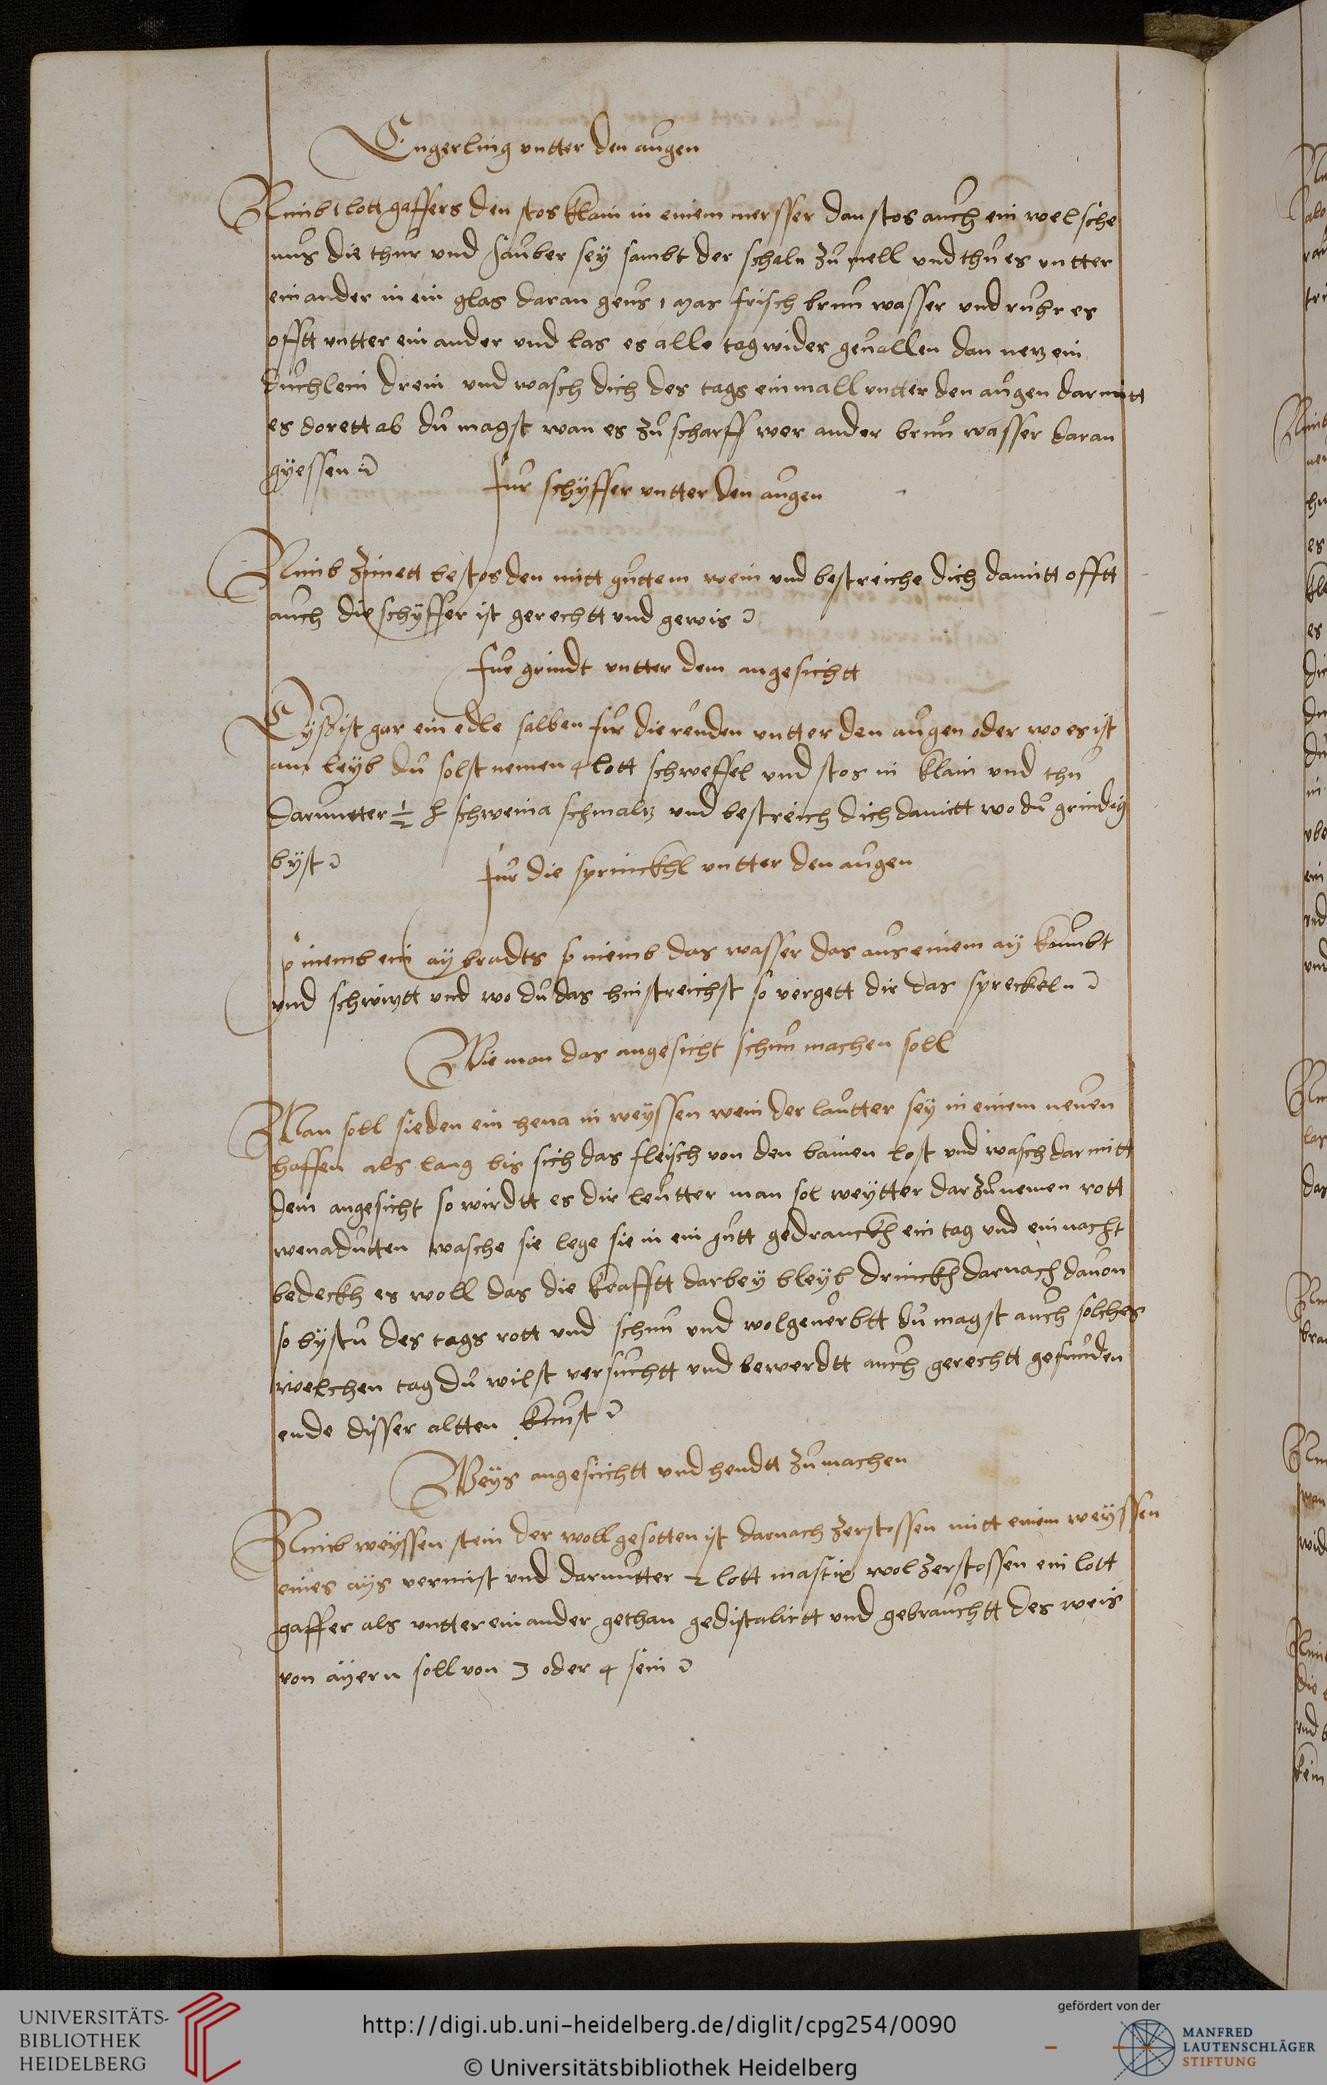 Engerling vntter den augen
Nimb 1 lott gaffers den stos klain in einem mersser dan stos auch ein welsche
nus die thur vnd sauber sey sambt der schaln zu mell vnd thu es vntter
ein ander in ein glas daran geus 1 mas frisch brun wasser vnd ruhr es
offtt vntter ein ander vnd las es alle tag wider geuallen dan nez ein
duchlein drein vnd wasch dich des tags ein mall vntter den augen darmitt
es dorett ab du magst wan es zu scharff wer ander brun wasser daran
gyessen
fur schyffer vntter den augen
Nimb zimett bestos den mitt guttem wein vnd bestreiche dich damitt offtt
auch die schyffer ist gerechtt vnd gewis
fur grindt vntter dem angesichtt
ist gar ein edle salben fur die reuden vntter den augen oder wo es ist
am leyb du solst nemen 4 lott schweffel vnd stos in klain vnd thu
darunter ½ schweina schmalz vnd bestreich dich damitt wo du grindig
byst
fur die sprinckhl vntter den augen
nemb ein ay bradts so niemb das wasser das aus einem ay kumbt
vnd schwiytt vnd wo du das hinstreichst so vergett dir das spreckeln
Wie man das angesicht schun machen soll
Man soll sieden ein hena in weyssen wein der lautter sey in einem neuen
haffen als lang bis sich das fleisch von den bainen lost vnd wasch darmitt
dein angesicht so wirdtt es dir leutter man sol weytter darzu nemen rott
wasche sie lege sie in ein gutt gedranckh ein tag vnd ein nacht
bedeckh es woll das die krafftt darbey bleyb drinckh darnach dauon
so bystu des tags rott vnd schun vnd wolgeuerbtt du magst auch solches
welchen tag du wilst versuchtt vnd bewerdtt auch gerechtt gefunden
ende disser altten kunst
Weys angesichtt vnd hendtt zu machen
Nimb weyssen stein der woll gesotten ist darnach zerstossen mitt einem weyssen
eines ays vermist vnd darunter ½ lott mastix wol zerstossen ein lott
gaffer als vntter ein ander gethan gedistalirtt vnd gebrauchtt des weis
von ayern soll von 3 oder 4 sein
UNIVERSITÄTS-
BIBLIOTHEK
HEIDELBERG
http://digi.ub.uni-heidelberg.de/diglit/cpg254/0090
© Universitätsbibliothek Heidelberg
gefördert von der
MANFRED
LAUTENSCHLÄGER
STIFTUNG